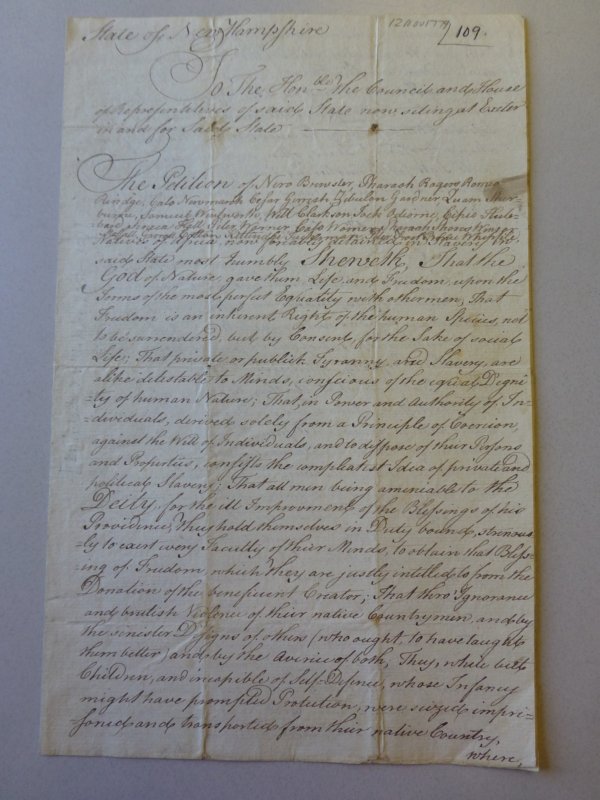 State of New Hampshire
12 Nov 1779
109.
To The Honble the Council and House
of Representatives of said State now siting at Exeter
in and for said State
The Petition of Nero Brewster, Pharaoh Rogers, Romeo
Rindge, Cato Newmarch, Cesar Gerrish, Zebulon Gardner, Quam Sher-
burne, Samuel Wentworth, Will Clarkson, Jack Odiorne, Cipio Hub-
bard, Seneca Hall, Peter Warner, Cato Warner, Pharaoh Shores, Winsor
Natives of Africa, now forcibly detained in Slavery in
said State most humbly Sheweth, That the
God of Nature, gave them, Life, and Freedom, upon the
Terms of the most perfect Equality with other men, That
Freedom is an inherent Right of the human Species, not
to be surrendered, but by Consent, for the Sake of social
Life; That private or publick Tyranny, and Slavery, are
alike detestable to Minds, conscious of the equal Digni-
-ty of human Nature; That, in Power and Authority of In-
-dividuals, derived solely from a Principle of Coercion,
against the Will of Individuals, and to dispose of their Persons
and Properties, consists the compleatest Idea of private and
political Slavery; That all men being ameniable to the
Deity, for the ill Improvement of the Blessings of his
Providence, They hold themselves in Duty bound, strenuous-
ly to exert every Faculty of their Minds, to obtain that Bless-
ing of Freedom which they are justly intitled to from the
Donation of the beneficent Creator; That thro' Ignorance
and brutish Violence of their native Countrymen, and by
the sinister Designs of others (who ought to have taught
them better) and by the Avarice of both, They, while but
Children, and incapible of Self-Defence, whose Infancy
might have prompted Protection, were seized, impri-
-soned and transported from their native Country,
where,